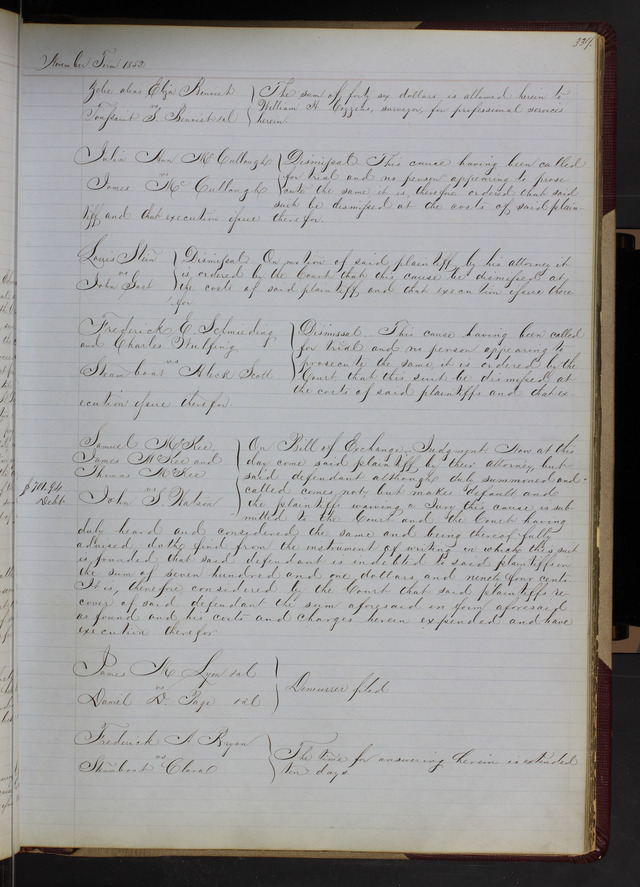 339.
November Term 1852
Zelie alias Eliza Benoist
vs
Toussaint S. Benoist et al
The sum of forty six dollars, is allowed herein to
William H. Cozzens, surveyor, for professional services
herein.
Julia Ann McCullough
vs
James McCullough
Dismissal. This cause having been called
for trial and no person appearing to prose-
cute the same it is, therefore ordered that said
suit be dismissed at the costs of said plain-
tiff and that execution issue therefor.
Louis Stein
vs
John Jost
Dismissal. On motion of said plaintiff, by his attorney it
is ordered by the Court that this cause be dismissed at
the costs of said plaintiff and that execution issue there
for
Frederick E. Schmieding
and Charles Wulfing
vs
Steamboat Aleck Scott
Dismissal. This cause having been called
for trial and no person appearing to
prosecute the same it is ordered by the
Court that this suit be dismissed at
the costs of said plaintiffs and that ex-
ecution issue therefor.
$701.94
Debt.
Samuel McKee
James McKee and
Thomas McKee
vs
John S. Watson
On Bill of Exchange, Judgment. Now at this
day come said plaintiff by their attorney, but
said defendant although duly summoned and
called comes not, but makes default and
the plaintiffs waiving a Jury this cause is sub-
mitted to the Court and the Court having
duly heard and considered the same and being thereof fully
advised, doth find from the instrument of writing on which this suit
is founded that said defendant is indebted to said plaintiffs in
the sum of seven hundred and one dollars, and ninety four cents.
It is, therefore considered by the Court that said plaintiffs re-
cover of said defendant the sum aforesaid in form aforesaid
as found and his costs and charges herein expended and have
execution therefor.
James H. Lyon et al
vs
Daniel D. Page et al
Demurrer filed
Frederick A. Bryan
vs
Steamboat Clara
The time for answering herein is extended
ten days.